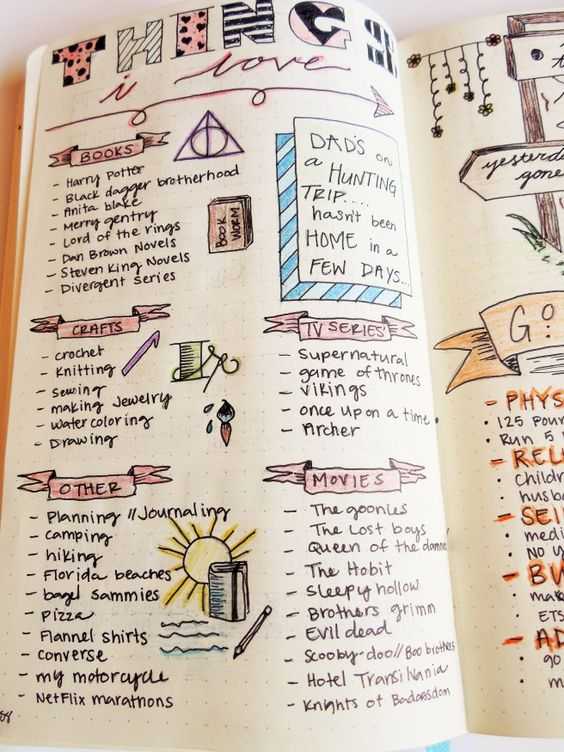 THINGS
i love
BOOKS
- Harry Potter
- Black dagger brotherhood
- Anita blake
- Merry gentry
- Lord of the rings
- Dan Brown Novels
- Steven King Novels
- Divergent series
BOOK
WORM
DAD'S on
a HUNTING
TRIP....
hasn't been
HOME in a
FEW DAYS...
CRAFTS
- crochet
- Knitting
- sewing
- making jewelry
- watercoloring
- Drawing
TV SERIES
- Supernatural
- game of thrones
- vikings
- once upon a time
- Archer
OTHER
- Planning // Journaling
- camping
- hiking
- Florida beaches
- bagel sammies
- Pizza
- Flannel shirts
- converse
- my motorcycle
- NetFlix marathons
MOVIES
- The goonies
- The Lost boys
- Queen of the damne
- The Hobit
- Sleepy hollow
- Brothers grimm
- Evil dead
- Scooby-doo // Boo brothers
- Hotel Transilvania
- Knights of Badassdon
yesterda
gone
GO
- PHYS
• 125 Poun
• Run 5
- REL
• Childr
• husba
- SEL
• medi
• NO
- BU
• mak
ETS
- AD
• 90
• m